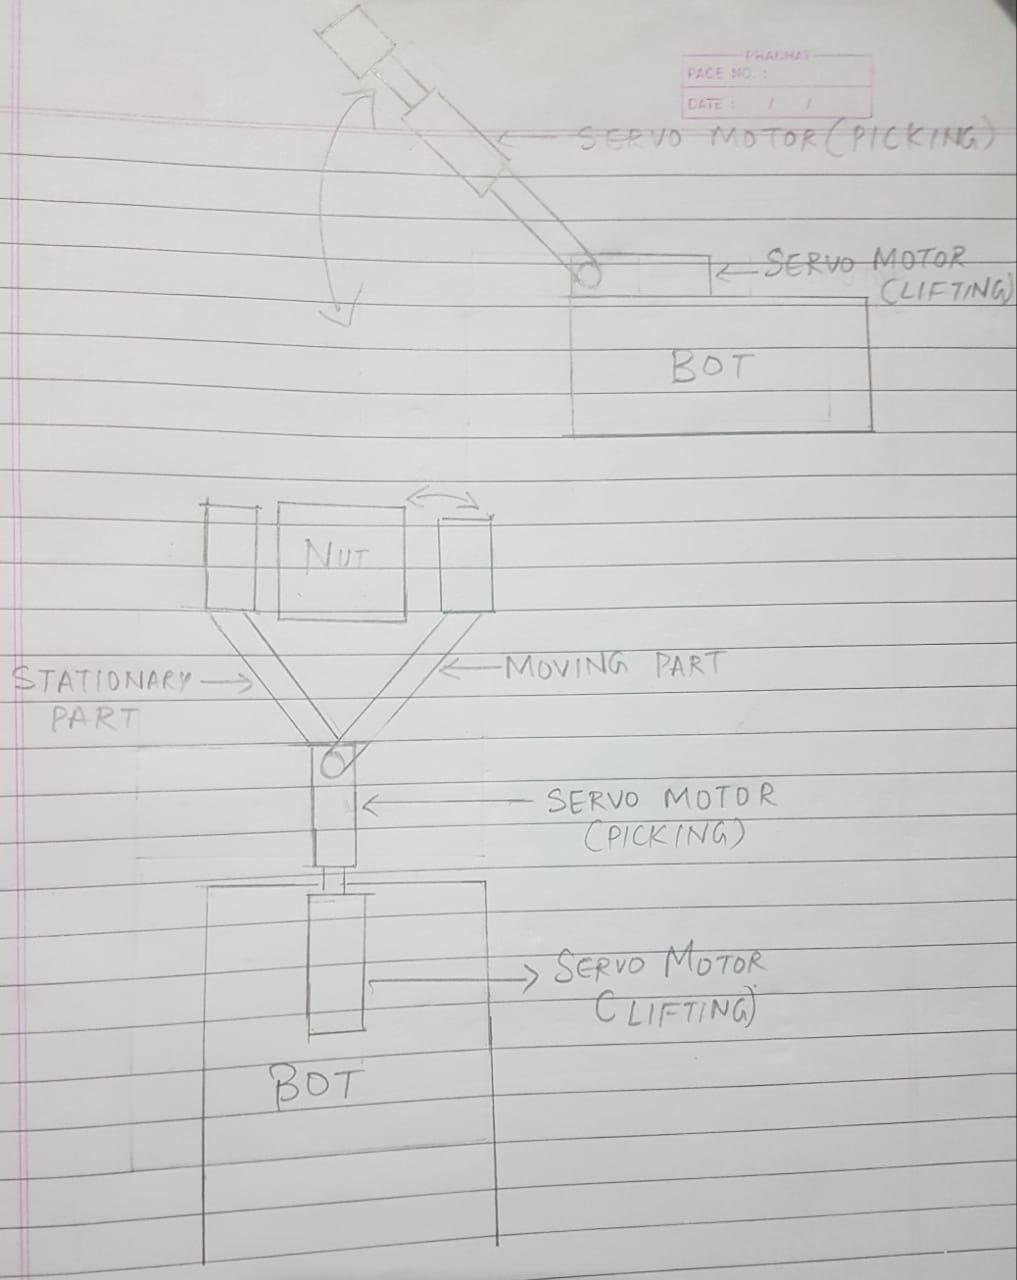 PRABHAT
PAGE NO. :
DATE : / /
SERVO MOTOR (PICKING)
SERVO MOTOR
(LIFTING)
BOT
NUT
STATIONARY
PART
MOVING PART
SERVO MOTOR
(PICKING)
SERVO MOTOR
(LIFTING)
BOT